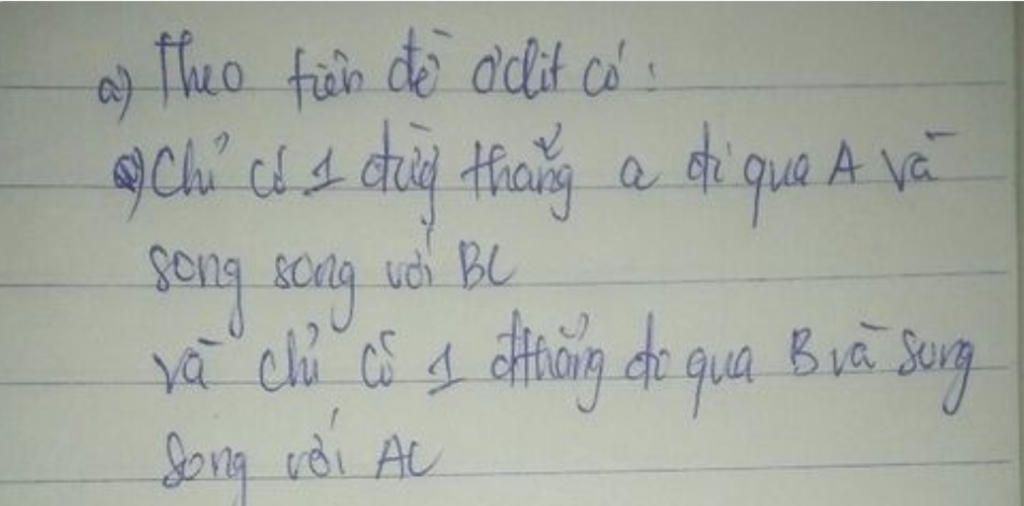 a) Theo tiên đề ơclit có:
Chỉ có 1 đường thẳng a đi qua A và
song song với BC
và chỉ có 1 đthẳng đi qua B và song
song với AC